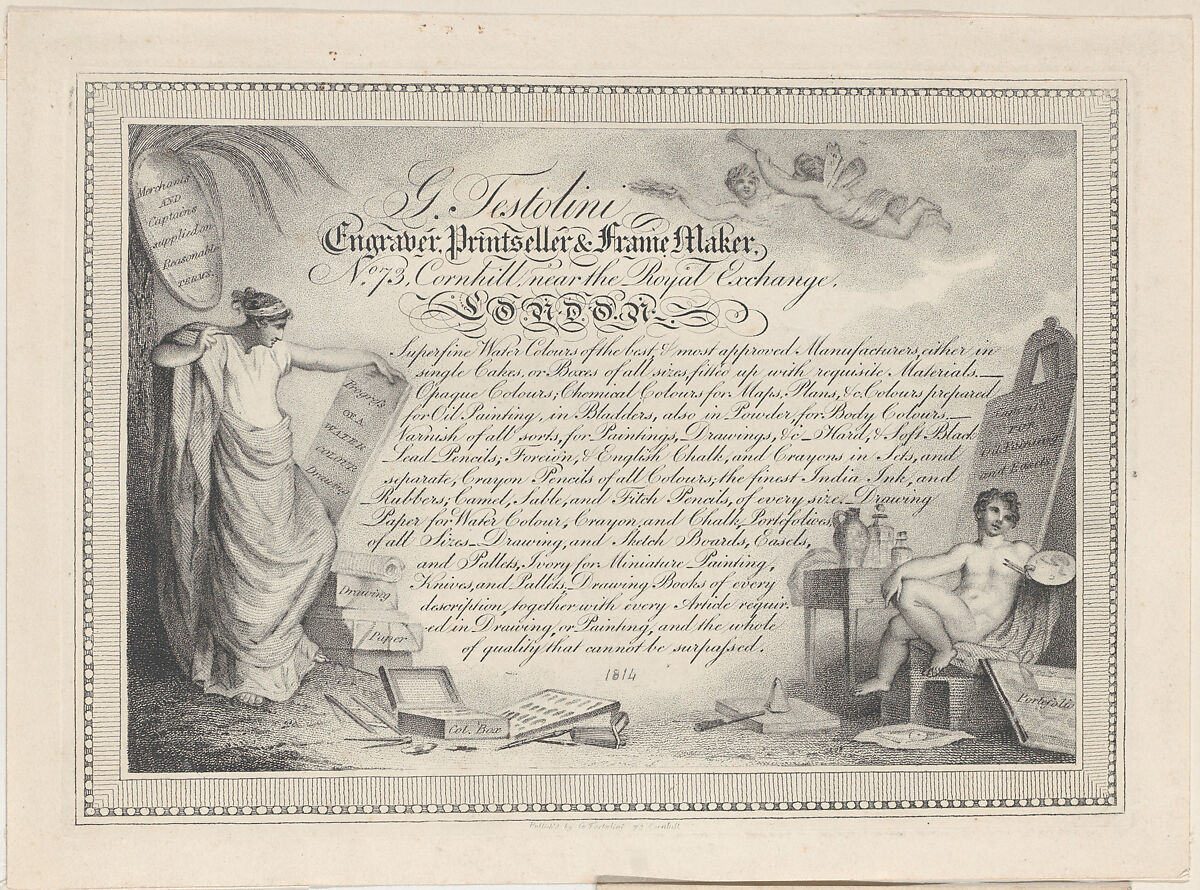 G. Testolini
Engraver, Printseller & Frame Maker,
No. 73, Cornhill, near the Royal Exchange,
LONDON.
Merchants
AND
Captains
supplied on
Reasonable
TERMS.
Superfine Water Colours of the best, & most approved Manufacturers, either in
single Cakes, or Boxes of all sizes, fitted up with requisite Materials.—
Opaque Colours; Chemical Colours for Maps, Plans, &c. Colours prepared
for Oil Painting, in Bladders, also in Powder, for Body Colours.—
Varnish of all sorts, for Paintings, Drawings, &c.—Hard, & Soft Black
Lead Pencils; Foreign, & English Chalk, and Crayons in Sets, and
separate, Crayon Pencils of all Colours; the finest India Ink, and
Rubbers; Camel, Sable, and Fitch Pencils, of every size.—Drawing
Paper for Water Colour, Crayon, and Chalk, Portefolives,
of all Sizes—Drawing, and Sketch Boards, Easels,
and Pallets, Ivory for Miniature Painting,
Knives, and Pallets, Drawing Books of every
description, together with every Article requir-
ed in Drawing, or Painting, and the whole
of quality that cannot be surpassed.
1814
OF A
WATER
COLOUR
Drawing
Drawing
Paper
Col. Box
FOR
Oil Painting
and Easels
Portefoli
Publish'd by G. Testolini 73 Cornhill